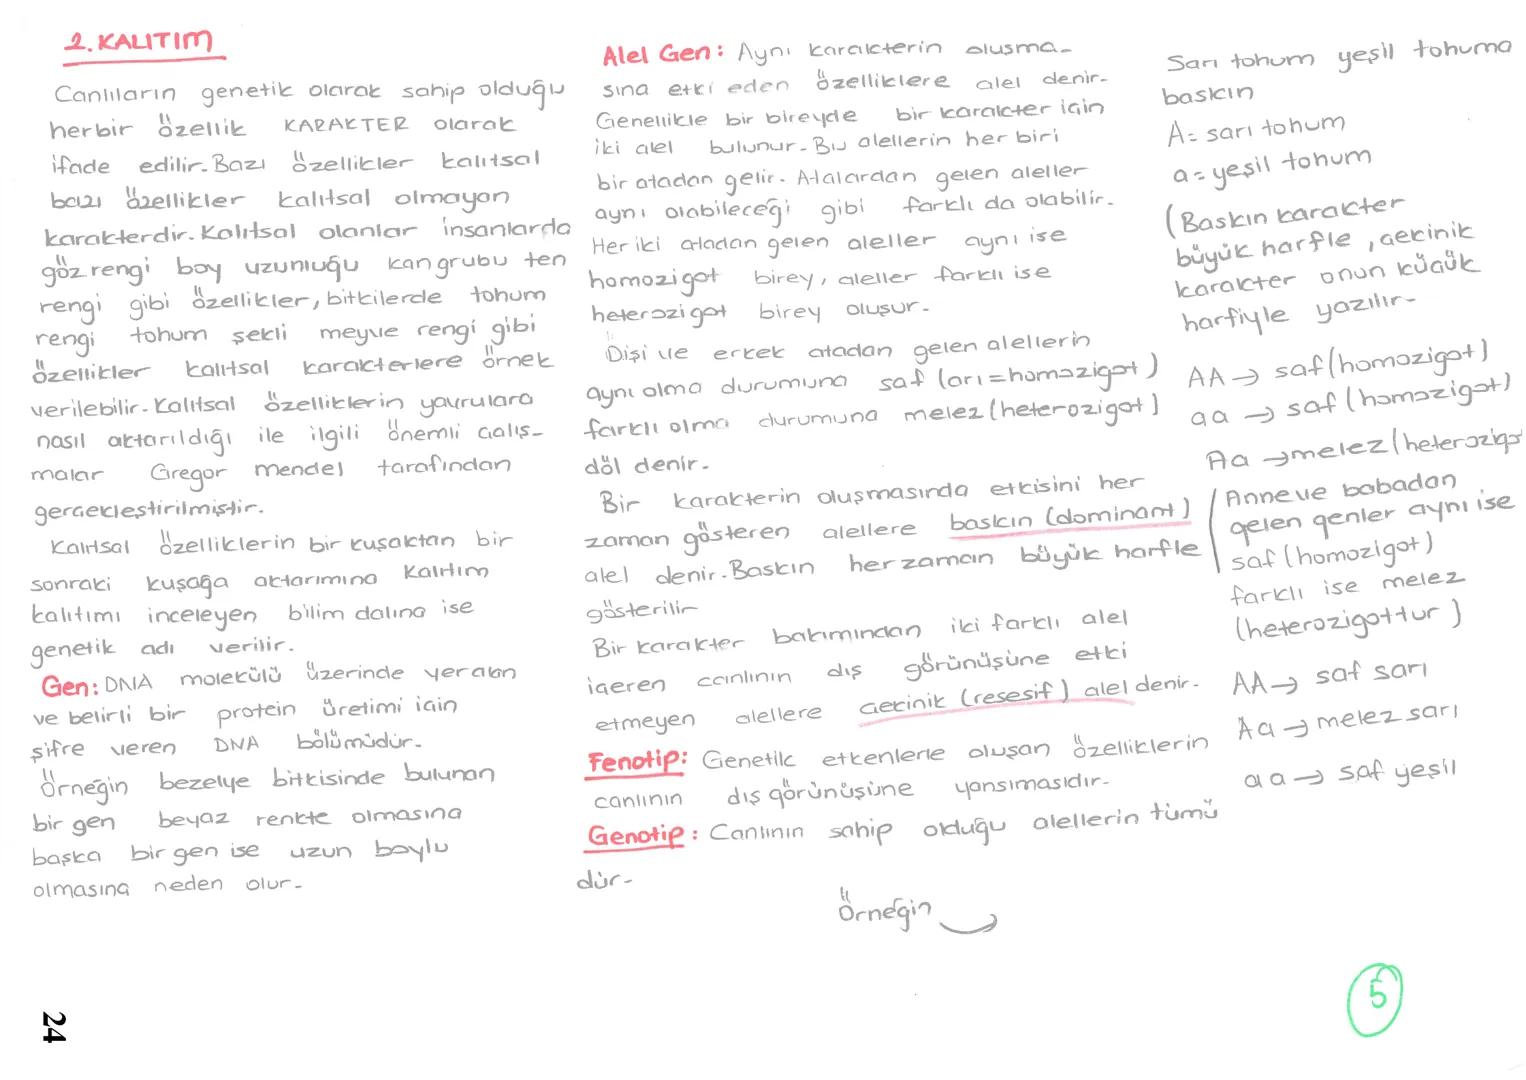 2. KALITIM
Canlıların genetik olarak sahip olduğu
herbir özellik KARAKTER olarak
ifade edilir. Bazı özellikler kalıtsal
bazı özellikler kalıtsal olmayan
karakterdir. Kalıtsal olanlar insanlarda
göz rengi boy uzunluğu kan grubu ten
rengi gibi özellikler, bitkilerde tohum
rengi tohum şekli meyve rengi gibi
özellikler kalıtsal karakterlere örnek
verilebilir. Kalıtsal özelliklerin yavrulara
nasıl aktarıldığı ile ilgili önemli çalış-
malar Gregor mendel tarafından
gerçekleştirilmiştir.
Kalıtsal özelliklerin bir kuşaktan bir
sonraki kuşağa aktarımına kalıtım
kalıtımı inceleyen bilim dalına ise
genetik adı verilir.
Gen: DNA molekülü üzerinde yer alan
ve belirli bir protein üretimi için
şifre veren DNA bölümüdür.
Örneğin bezelye bitkisinde bulunan
bir gen beyaz renkte olmasına
başka bir gen ise uzun boylu
olmasına neden olur.
24
Alel Gen: Aynı karakterin oluşma-
sına etki eden özelliklere alel denir.
Genellikle bir bireyde bir karakter için
iki alel bulunur. Bu alellerin her biri
bir atadan gelir. Atalardan gelen aleller
aynı olabileceği gibi farklı da olabilir.
Her iki atadan gelen aleller aynı ise
homozigot birey, aleller farklı ise
heterozigot birey oluşur.
Dişi ve erkek atadan gelen alellerin
aynı olma durumuna saf (arı=homozigot)
farklı olma durumuna melez (heterozigot)
döl denir.
Bir karakterin oluşmasında etkisini her
zaman gösteren alellere baskın (dominant)
alel denir. Baskın her zaman büyük harfle
gösterilir
Bir karakter bakımından iki farklı alel
içeren canlının dış görünüşüne etki
etmeyen alellere çekinik (resesif) alel denir.
Fenotip: Genetik etkenlerle oluşan özelliklerin
canlının dış görünüşüne yansımasıdır.
Genotip: Canlının sahip olduğu alellerin tümü
dür.
Örneğin
Sarı tohum yeşil tohuma
baskın
A= sarı tohum
a= yeşil tohum
(Baskın karakter
büyük harfle, çekinik
karakter onun küçük
harfiyle yazılır.
AA → saf (homozigot)
aa → saf (homozigot)
Aa → melez (heterozigot
(Anne ve babadan
gelen genler aynı ise
saf (homozigot)
farklı ise melez
(heterozigottur)
AA → saf sarı
Aa → melez sarı
aa → saf yeşil
5